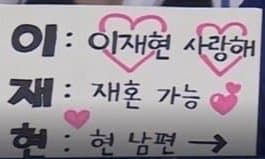 이 : 이재현 사랑해
재 : 재혼 가능
현 : 현 남편 →